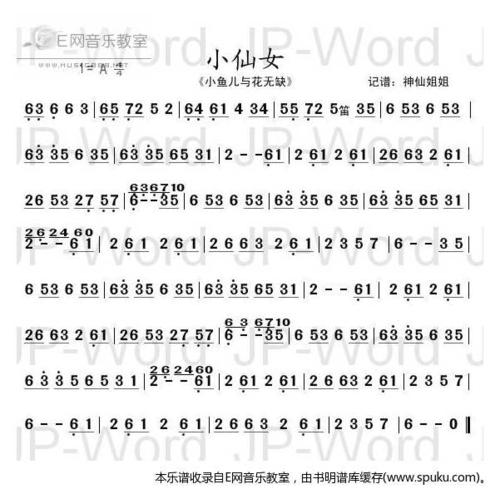 E网音乐教室
JP-Word JP-Word
小仙女
1= A 4/4
《小鱼儿与花无缺》 记谱：神仙姐姐
63 6 6 3 | 65 72 5 2 | 64 61 4 34 | 55 72 5笛 35 | 6 53 6 53 |
63 35 6 35 | 63 35 65 31 | 2 - - 61 | 2 61 2 61 | 26 63 2 61 |
636710
26 53 27 57 | 6 - - 35 | 6 53 6 53 | 63 35 6 35 | 63 35 65 31 |
262460
2 - - 61 | 2 61 2 61 | 2 6 6 3 2 61 | 2 3 5 7 | 6 - - 3 5 |
6 53 6 53 | 63 35 6 35 | 63 35 65 31 | 2 - - 61 | 2 61 2 61 |
6 3 6710
26 63 2 61 | 26 53 27 57 | 6 - - 35 | 6 53 6 53 | 63 35 6 35 |
262460
6 3 3 5 6 5 3 1 | 2 - - 61 | 2 61 2 61 | 2 6 63 2 61 | 2 3 5 7 |
6 - - 6 1 | 2 61 2 61 | 2 6 6 3 2 61 | 2 3 5 7 | 6 - - 0 ‖
本乐谱收录自E网音乐教室，由书明谱库缓存(www.spuku.com)。